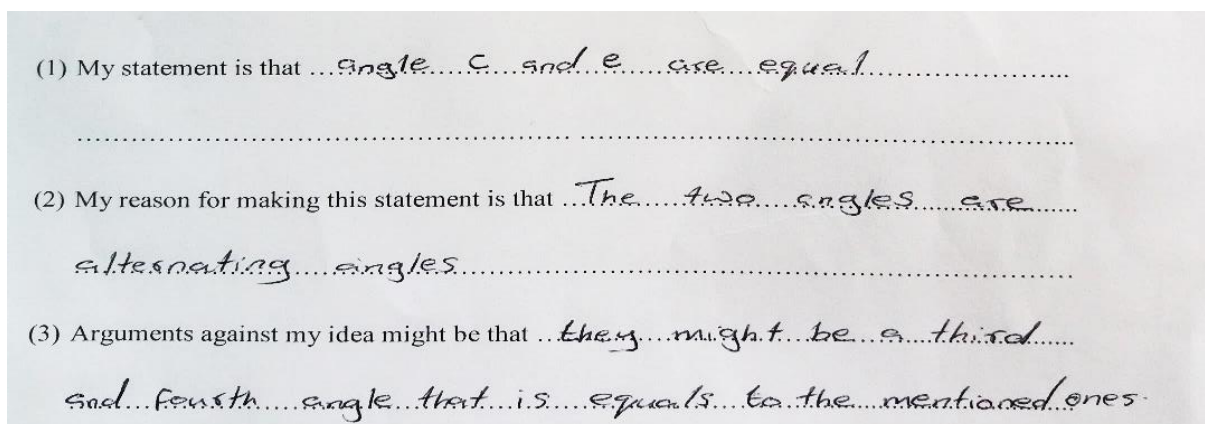 (1) My statement is that ...angle....c...and..e.....are....equal......................
.......................................................................................................
(2) My reason for making this statement is that ...The.....two....angles.....are.......
alternating....angles...........................................................................
(3) Arguments against my idea might be that ...they....might...be...a....third......
and...fourth.....angle...that...is....equals...to..the....mentioned..ones.